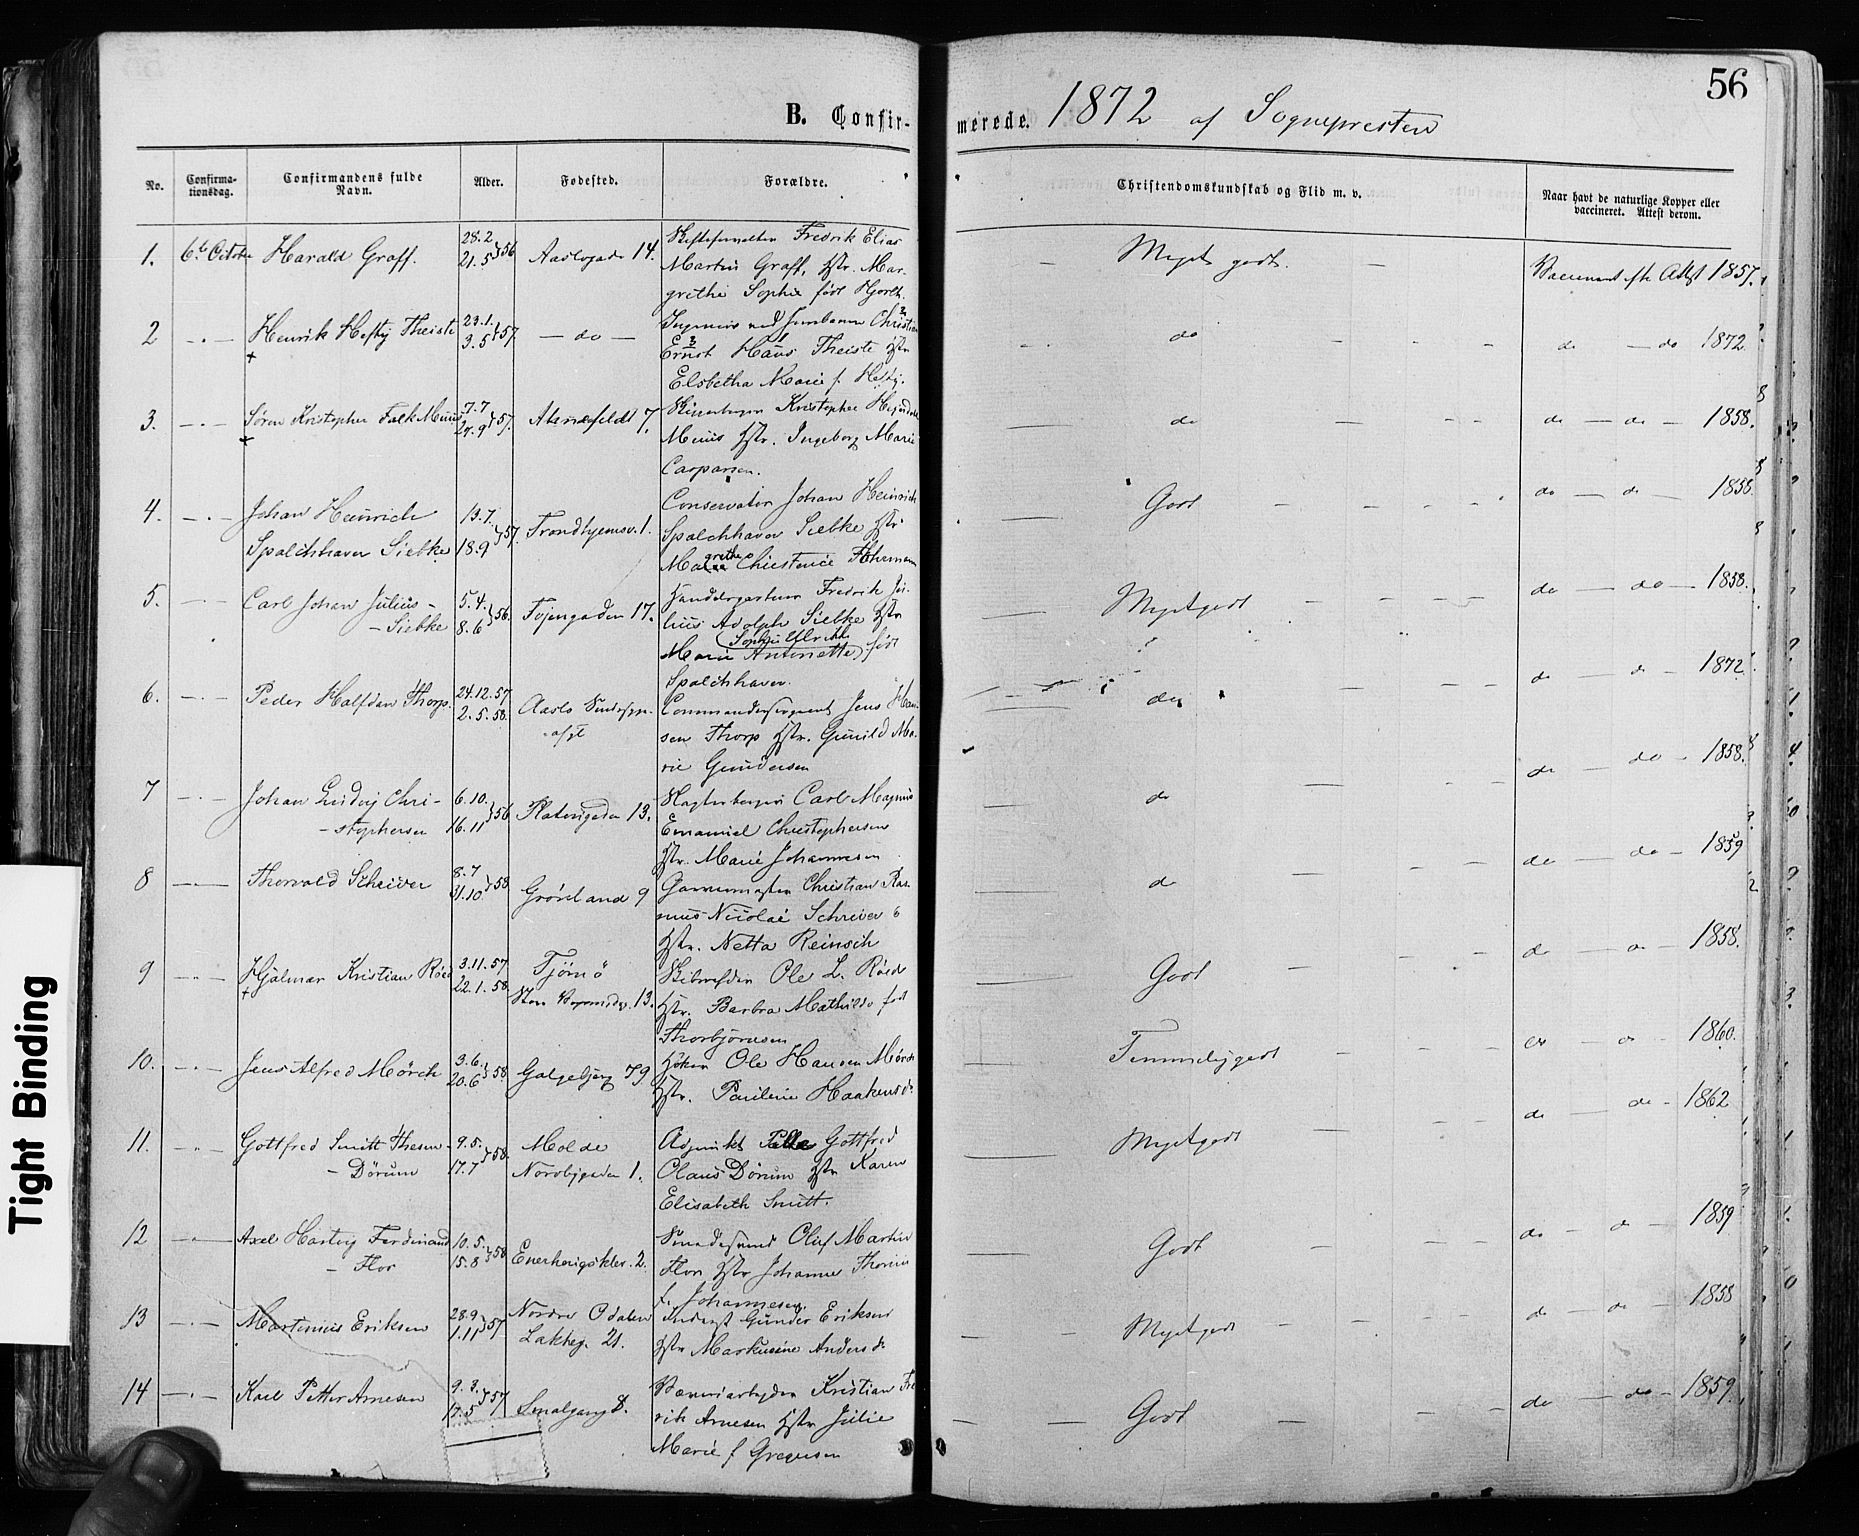 56
B. Confir-
merede. 1872 af Sognepresten
No.
Confirma-
tionsdag.
Confirmandens fulde
Navn.
Alder.
Fødested.
Forældre.
Christendomskundskab og Flid m. v.
Naar havt de naturlige Kopper eller
vaccineret. Attest derom.
1. 6te Octobr Harald Graff. 28.2 21.5 56 14. Fredrik Elias
Martin Graff, Hstr. Mar-
grethe Sophie født Hjorth.
Meget godt. 1857.
2 Henrik Heftij Theiste 23.1. 3.5 57. – do – Ingeniør ved Jernbanen Christian
Ernst Hans Theiste Hstr
Elsbetha Marie f. Heftij.
do do – do 1872.
3. Søren Kristopher Falk Muus 7.7 29.9 57. 7. Kristopher
Muus Hstr. Ingeborg Marie
Casparsen.
do do – do – 1858.
4. Johan Heinrich
Spalchhaver Siebke 13.7. 18.9 57. Trondhjemsv. 1. Conservator Johan Heinrich
Spalchhaver Siebke Hstr
Margrethe Christence
Godt do – do – 1858.
5. Carl Johan Julius –
– Siebke 5.4. 8.6 56. Tøjengaden 17. Fredrik Ju-
lius Adolph Siebke Hstr
Marie Antonette, født
Spalchhaver.
Meget godt do – do – 1858.
6. Peder Halfdan Thorp. 24.12.57 2.5.58. Aaslo Jens Han-
sen Thorp Hstr. Gunild Ma-
rie Gundersen
do do – do – 1872.
7 Johan Ludvig Chri-
– stophersen 6.10. 16.11 56 Platousgaden 13. Carl Magnus
Emanuel Christophersen
Hstr. Marie Johannesen
do do do – 1858.
8 Thorvald Schriver 8.7 31.10 58 Grønland 9 Christian Ras-
mus Nicolai Schriver
Hstr. Netta Reinsch
do do – do – 1859
9 Hjalmar Kristian Røed 3.11.57 22.1.58. Tjømø
13. Ole L. Røed
Hstr. Barbra Mathilde født
Thorbjørnsen
Godt do – do – 1858.
10. Jens Alfred Mörch 3.6. 20.6 58. Galgebjerg 79 Høker Ole Hansen Mörch
Hstr. Pauline Haakensdr
Temmeligodt do – do – 1860.
11. Gottfred Smitt Thesen
– Dörum 9.5. 17.7 58. Molde
Nordbygaden 1. Adjunkt Gottfred
Claus Dörum Hstr Karen
Elisabeth Smitt.
Meget godt do do – 1862
12 Axel Hartvig Ferdinand
– Flor 10.5. 15.8 58 Enerhougskler. 2. Smedesvend Oluf Martin
Flor Hstr Johanne
f. Johannesen.
Godt do – do – 1859
13 Martinius Eriksen 28.9 1.11 57 Nordre Odalen
Lakkeg. 21. Inderst Gunder Eriksen
Hstr Markusine Andersdr
Meget godt do – do – 1858
14 Karl Petter Arnesen 9.3. 17.5 57 Smalgang 8. Kristian Fre
rik Arnesen Hstr Julie
Marie f Gregersen
Godt do – do – 1859.
Tight Binding